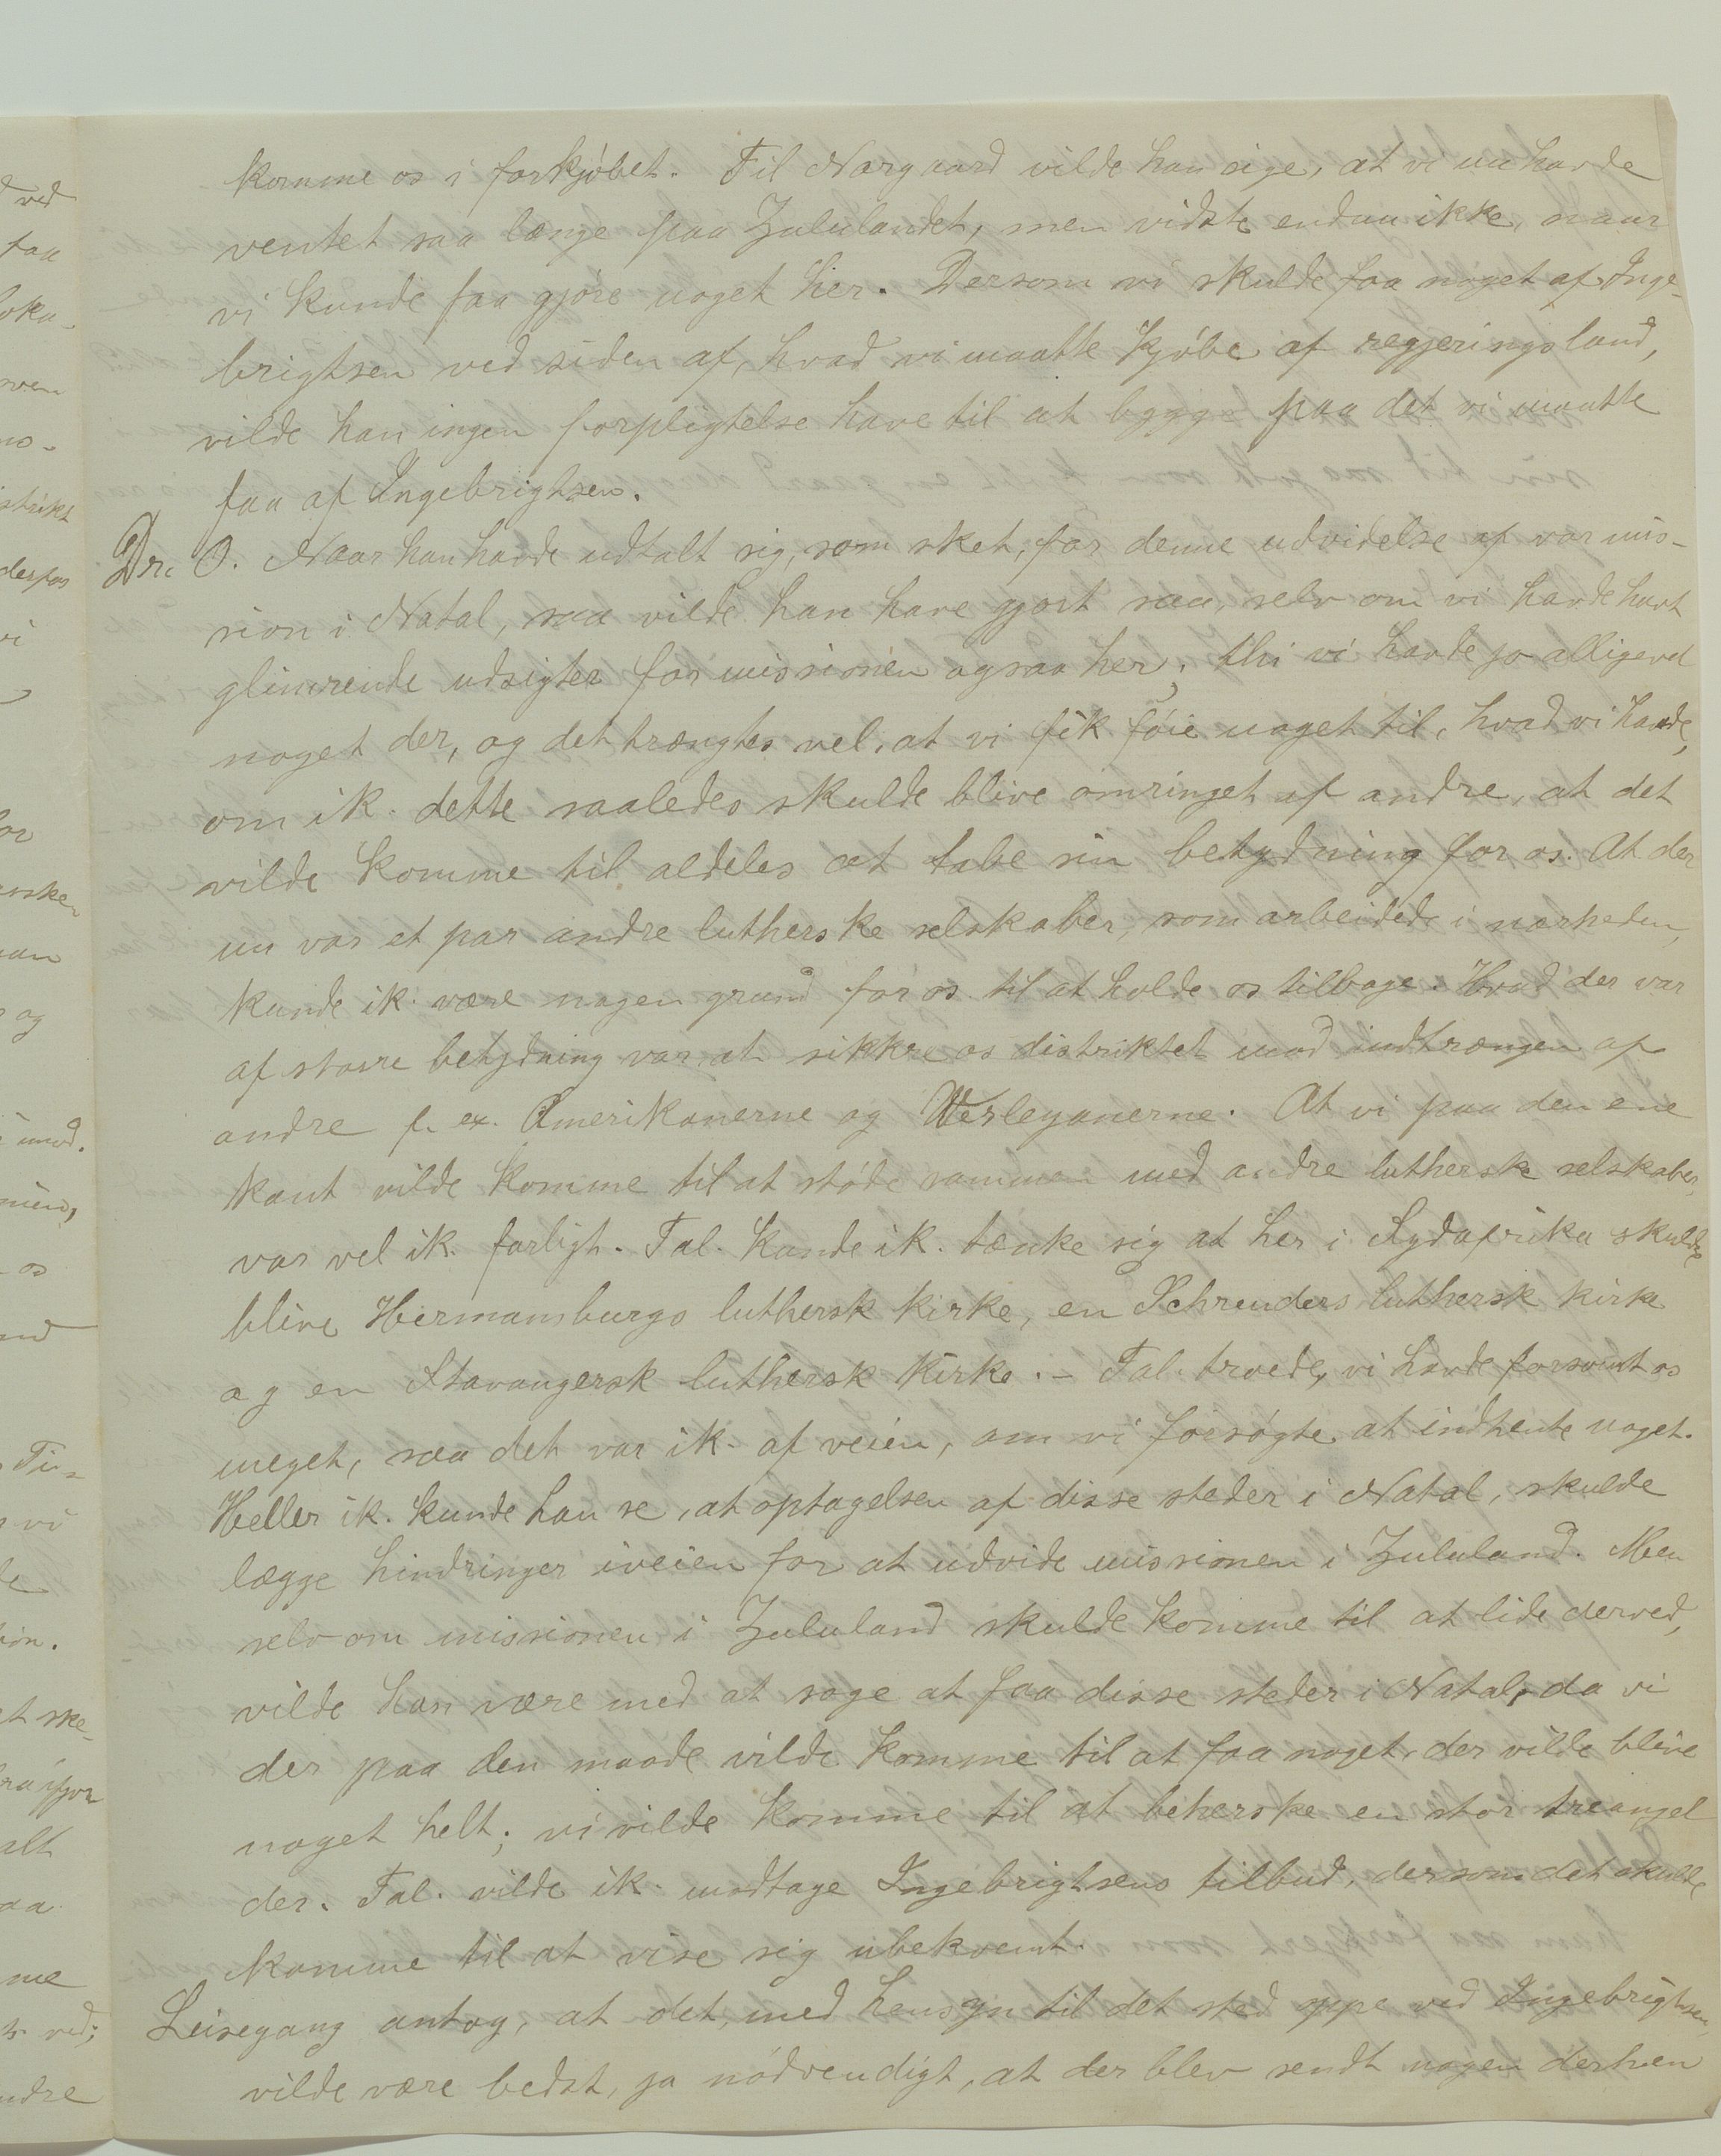 komme os i forkjøbet. Til Nørgaard vilde han sige, at vi nu havde
ventet saa længe paa Zululandet, men vidste endnu ikke, naar
vi kunde faa gjøre noget her. Dersom vi skulde faa noget af Inge-
brigtsen ved siden af, hvad vi maatte kjøbe af regjeringsland,
vilde han ingen forpligtelse have til at bygge paa det vi maatte
faa af Ingebrigtsen.
Dr. O. Naar han havde udtalt sig, som sket, for denne udvidelse af vor mis-
sion i Natal, saa vilde han have gjort saa, selv om vi havde havt
glimrende udsigter for missionen ogsaa her; thi vi havde jo alligevel
noget der, og det trængtes vel, at vi fik føie noget til, hvad vi havde,
om ik. dette saaledes skulde blive omringet af andre, at det
vilde komme til aldeles at tabe sin betydning for os. At der
nu var et par andre lutherske selskaber, som arbeidede i nærheden,
kunde ik. være nogen grund for os til at holde os tilbage. Hvad der var
af større betydning var at sikkre os distriktet mod indtrængen af
andre f. ex. Amerikanerne og Wesleyanerne. At vi paa den ene
kant vilde komme til at støde sammen med andre luthersk selskaber,
var vel ik. farligt. Tal. kunde ik. tænke sig at her i Sydafrika skulde
blive Hermansburgs luthersk kirke, en Schreuders luthersk kirke
og en Stavangersk luthersk kirke. – Tal. troede, vi havde forsømt os
meget, saa det var ik. af veien, om vi forsøgte at indhente noget.
Heller ik. kunde han se, at optagelsen af disse steder i Natal, skulde
lægge hindringer iveien for at udvide missionen i Zululand. Men
selv om missionen i Zululand skulde komme til at lide derved,
vilde han være med at søge at faa disse steder i Natal, da vi
der paa den maade vilde komme til at faa noget, der vilde blive
noget helt; vi vilde komme til at beherske en stor treangel
der. Tal. vilde ik. modtage Ingebrigtsens tilbud, dersom det skulde
komme til at vise sig ubekvemt.
Leisegang antog, at det, med hensyn til det sted oppe ved Ingebrigtsen,
vilde være bedst, ja nødvendigt, at der blev sendt nogen derhen